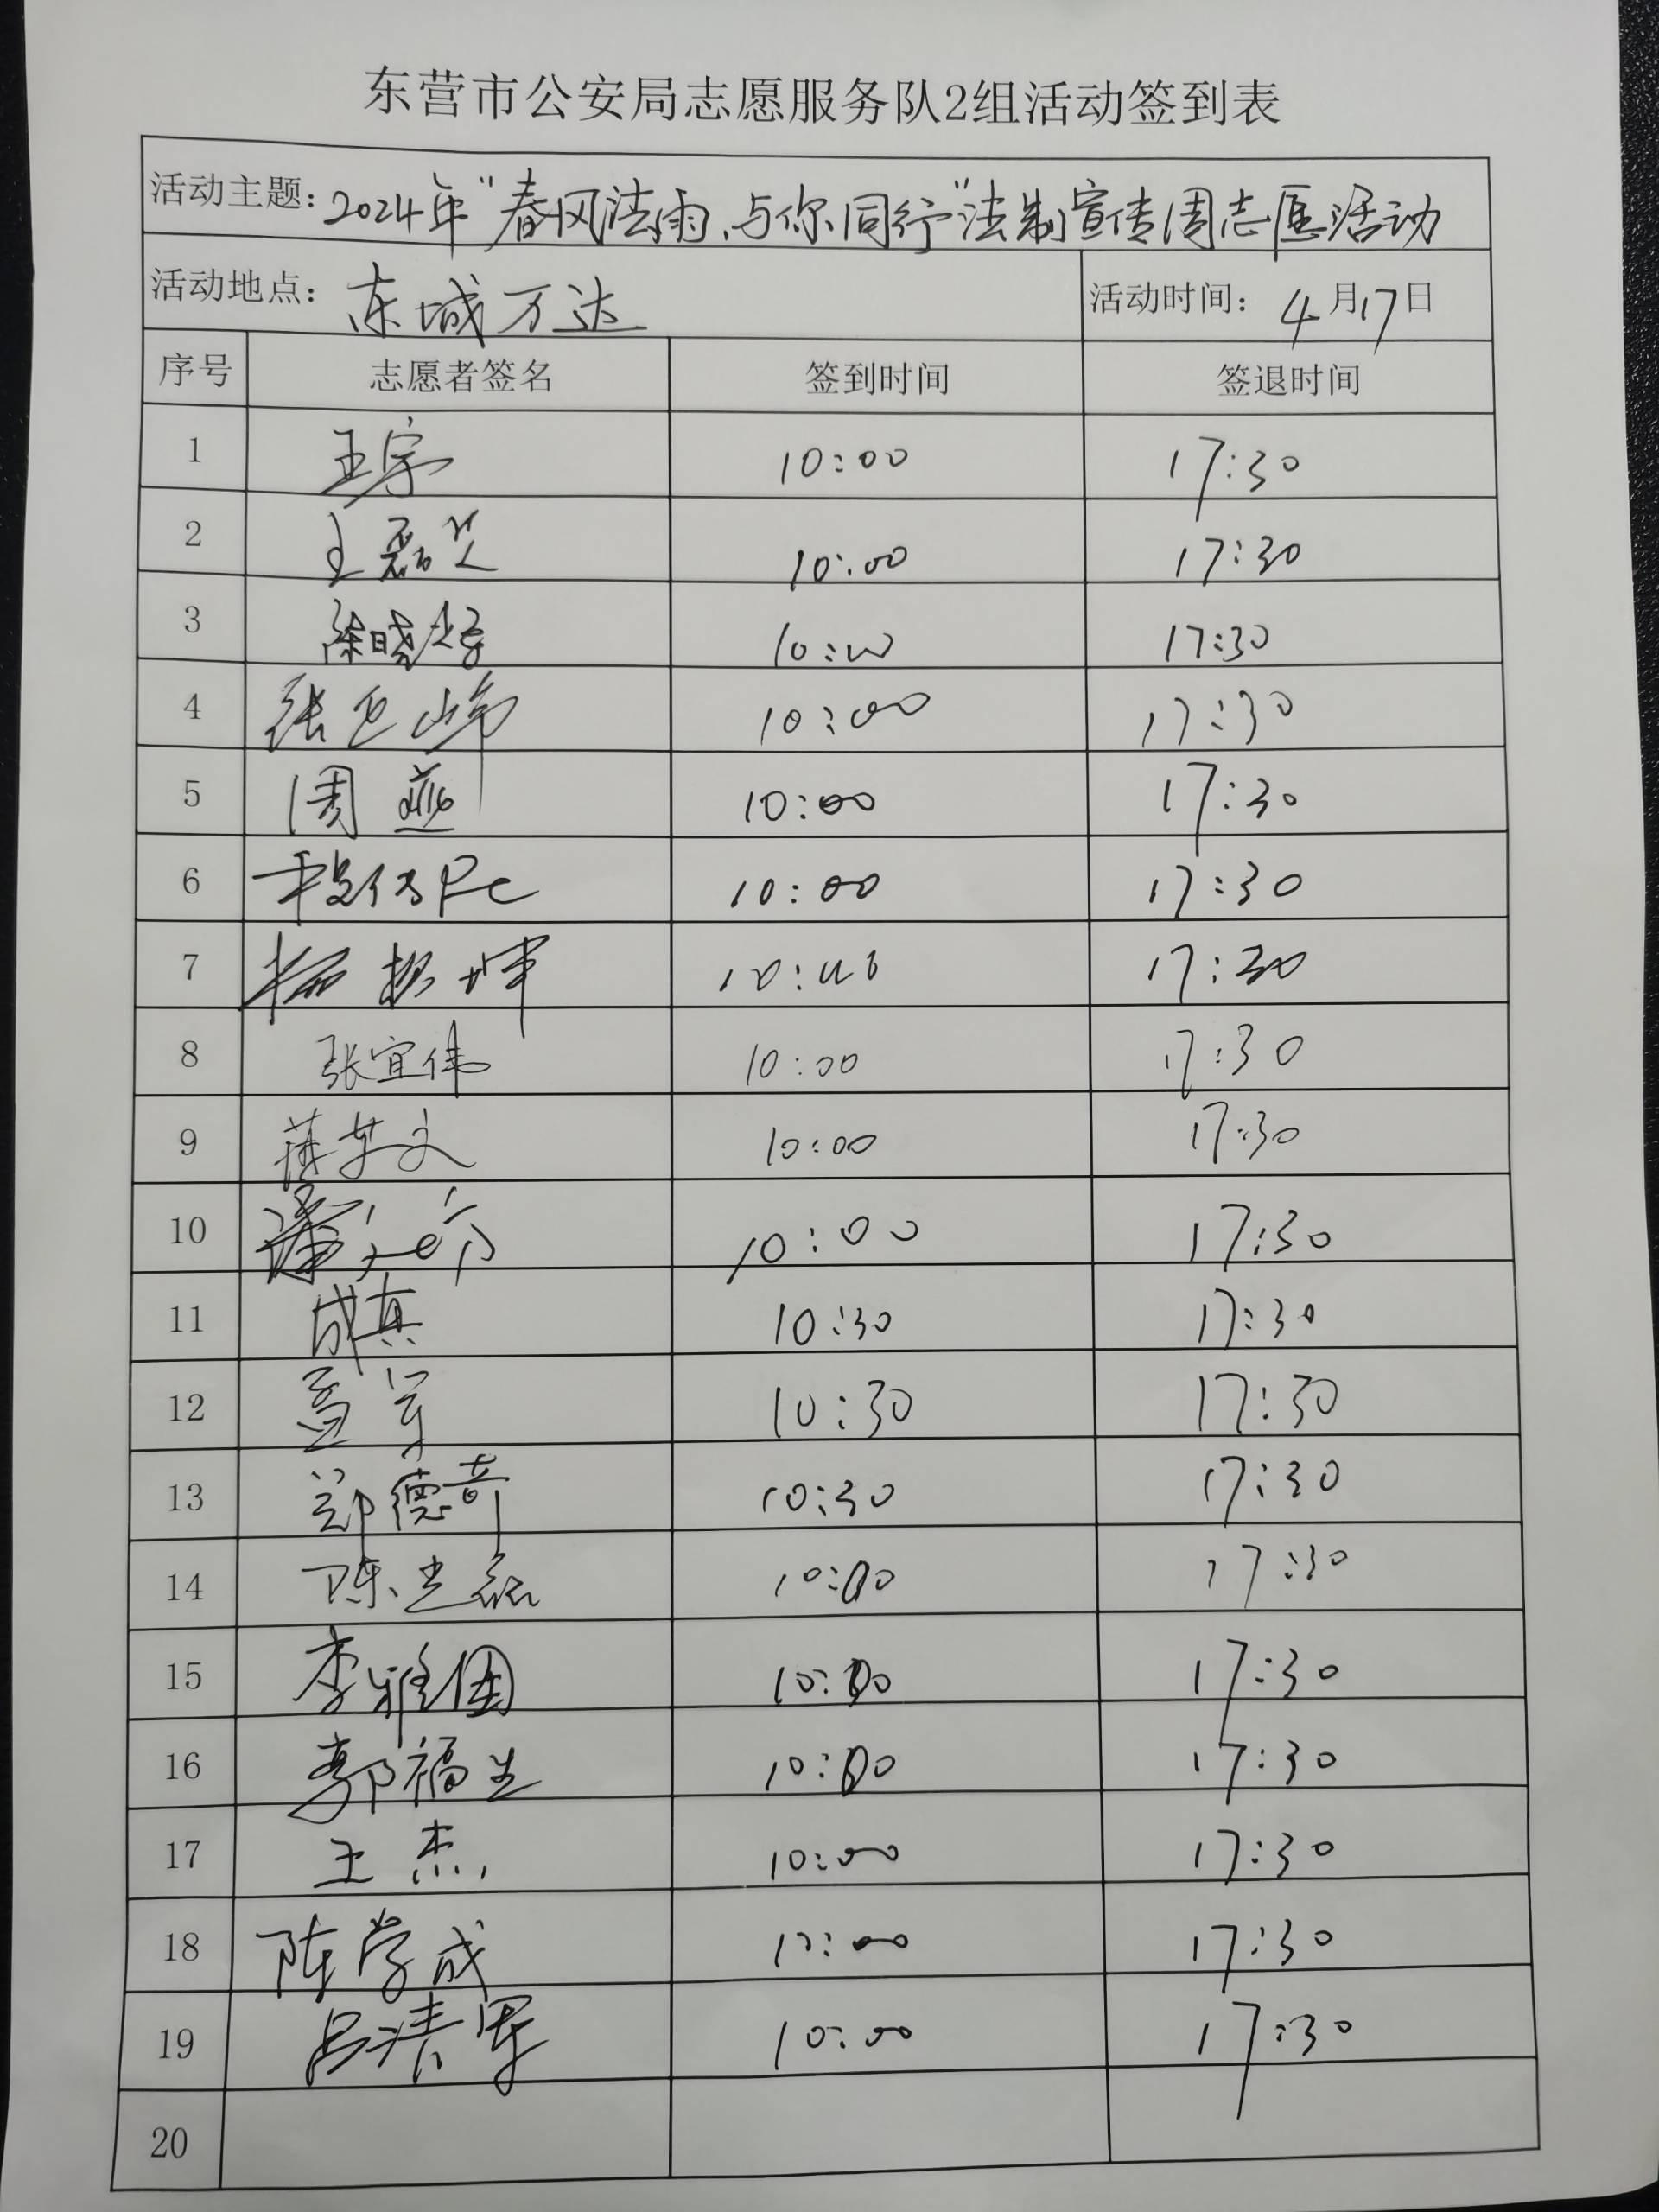 东营市公安局志愿服务队2组活动签到表
活动主题：2024年“春风法雨、与你同行”法制宣传周志愿活动
活动地点：东城万达 活动时间：4月17日
序号 志愿者签名 签到时间 签退时间
1 王宗 10:00 17:30
2 王磊 10:00 17:30
3 徐晓 10:00 17:30
4 张 峰 10:00 17:30
5 周燕 10:00 17:30
6 10:00 17:30
7 杨振坤 10:00 17:30
8 张宜伟 10:00 17:30
9 薄 文 10:00 17:30
10 潘 10:00 17:30
11 成真 10:30 17:30
12 孟军 10:30 17:30
13 郑德奇 10:30 17:30
14 陈志磊 10:00 17:30
15 李雅倩 10:00 17:30
16 郭福生 10:00 17:30
17 王杰 10:00 17:30
18 陈学成 17:30
19 吕清军 10:00 17:30
20